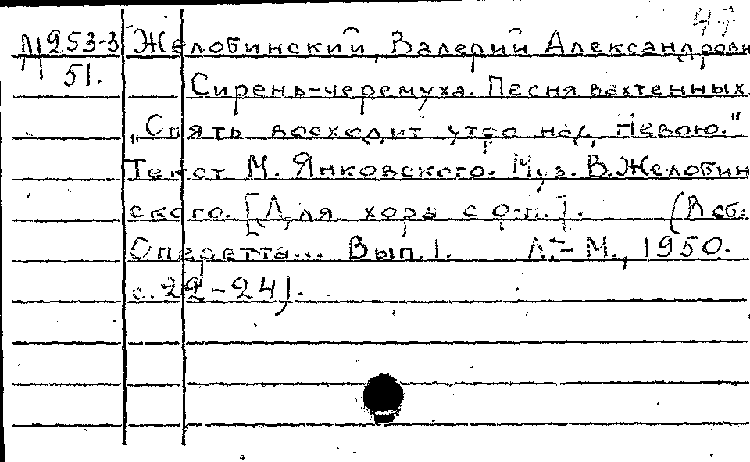 47
М 253-3 Желобинский, Валерий Александрови
51. Сирень-черемуха. Песня вахтенных.
"Спять восходит утро над Невою."
Текст М. Янковского. Муз. В. Желобин
ского. [Для хора с ф-п.]. (В сб.
Оперетта... Вып. 1. Л.-М., 1950.
с. 22-24).